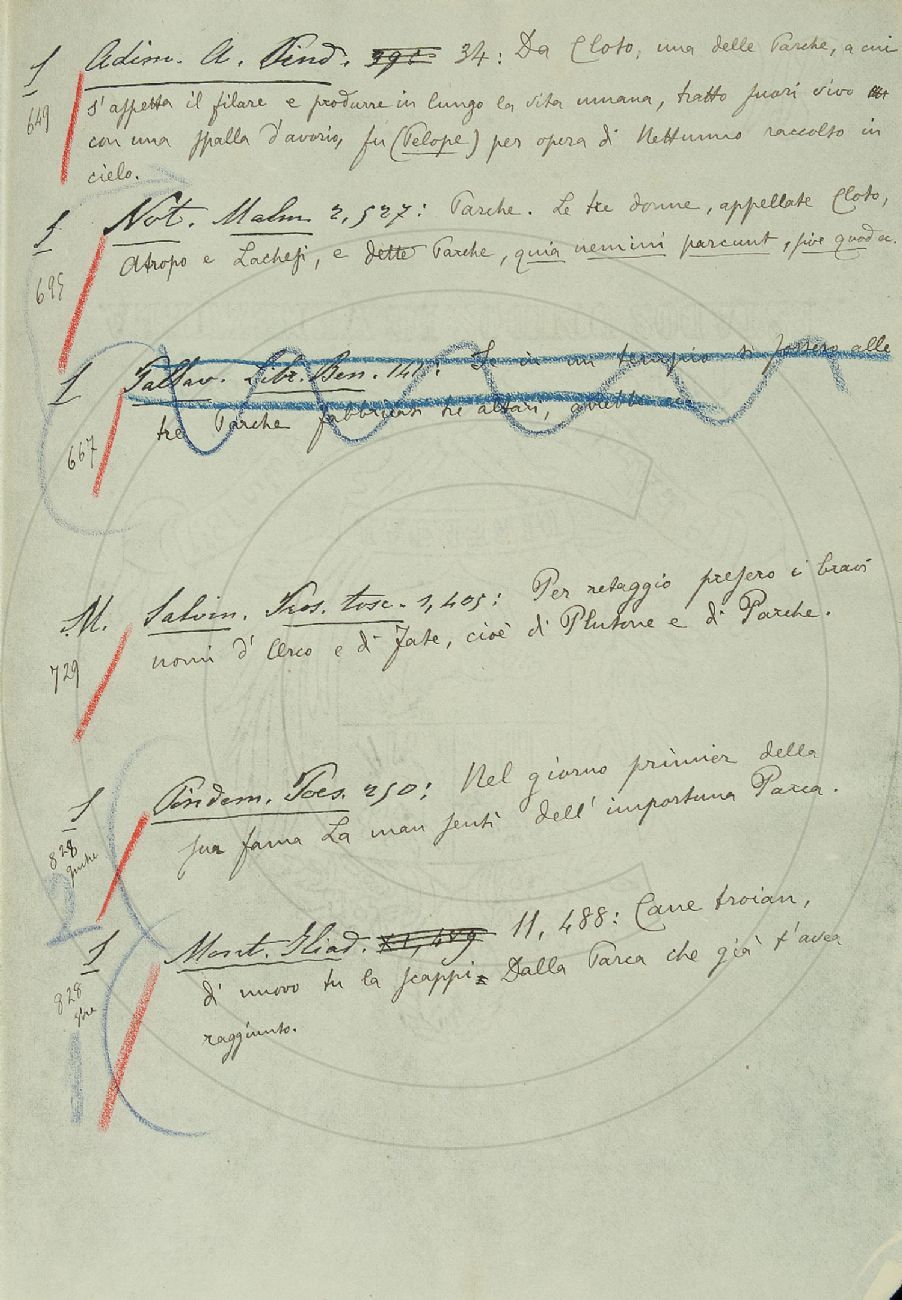 § Adim. A. Pind. 34: Da Cloto, una delle Parche, a cui
649 s'aspetta il filare e produrre in lungo la vita umana, tratto fuori vivo
con una spalla d'avorio, fu (Pelope) per opera di Nettunno raccolto in
cielo.
§ Not. Malm. 2, 527: Parche. Le tre donne, appellate Cloto,
695 Atropo e Lachesi, e dette Parche, quia nemini parcunt, sive quod ec.
§ Pallav. Libr. Ben. 141: Se in un tempio si fossero alle
667 tre Parche fabbricati tre altari, avrebbe ec.
M. Salvin. Pros. tosc. 1, 405: Per retaggio presero i bravi
729 nomi d'Orco e di Fate, cioè di Plutone e di Parche.
§ Pindem. Poes. 250: Nel giorno primier della
828 sua fama La man sentì dell'importuna Parca.
2
§ Mont. Iliad. 11, 488: Cane troian,
828 di nuovo tu la scappi Dalla Parca che già t'avea
raggiunto.
1